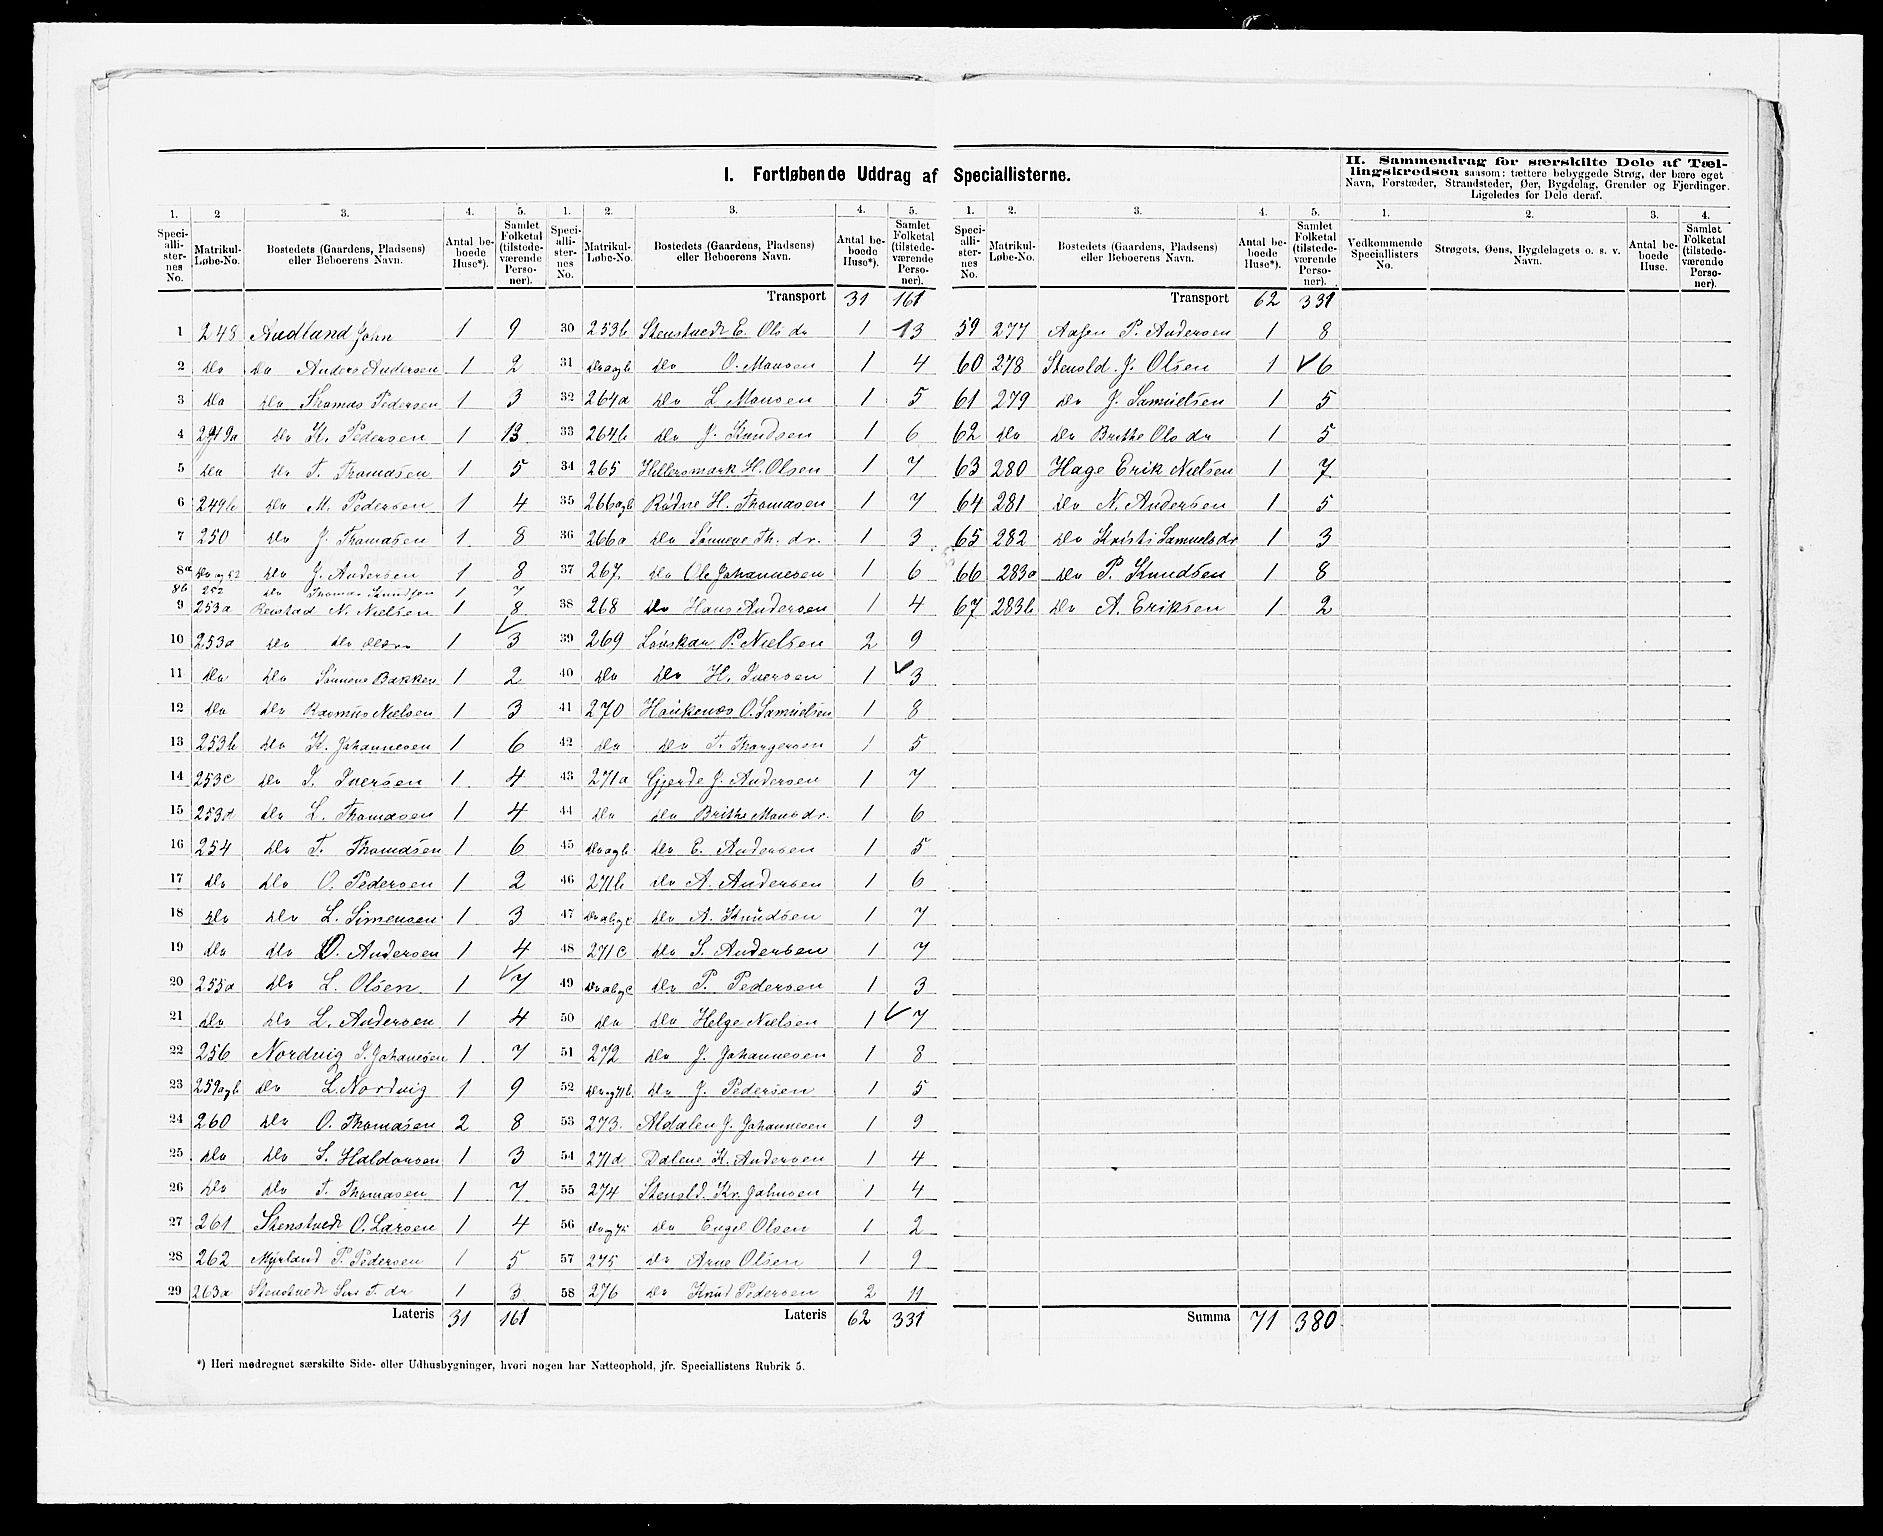 I. Fortløbende Uddrag af Speciallisterne.
II. Sammendrag for særskilte Dele af Tællingskredsen saasom: tættere bebyggede Strøg, der bære eget
Navn, Forstæder, Strandsteder, Øer, Bygdelag, Grender og Fjerdinger.
Ligeledes for Dele deraf.
1. 2 3. 4. 5. 1. 2. 3. 4. 5. 1. 2. 3. 4. 5. 1. 2. 3. 4.
Speciallisternes No. Matrikul-Løbe-No. Bostedets (Gaardens, Pladsens) eller Beboerens Navn. Antal beboede Huse*). Samlet Folketal (tilstedeværende Personer).
Speciallisternes No. Matrikul-Løbe-No. Bostedets (Gaardens, Pladsens) eller Beboerens Navn. Antal beboede Huse*). Samlet Folketal (tilstedeværende Personer).
Speciallisternes No. Matrikul-Løbe-No. Bostedets (Gaardens, Pladsens) eller Beboerens Navn. Antal beboede Huse*). Samlet Folketal (tilstedeværende Personer).
Vedkommende Speciallisters No. Strøgets, Øens, Bygdelagets o. s. v. Navn. Antal beboede Huse. Samlet Folketal (tilstedeværende Personer).
1 248 Audland John 1 9
2 do do Anders Andersen 1 2
3 do do Thomas Pedersen 1 3
4 249a do K. Pedersen 1 13
5 do do T. Thomasen 1 5
6 249b do M. Pedersen 1 4
7 250 do J. Thomasen 1 8
8a do og 52 do J. Andersen 1 8
8b 252 do Thomas Knudsen 1 7
9 253a Reistad N. Nielsen 1 8
10 253a do do 1 3
11 do do Sønneve Bakken 1 2
12 do do Rasmus Nielsen 1 3
13 253b do K. Johannesen 1 6
14 253c do I. Iversen 1 4
15 253d do L. Thomasen 1 4
16 254 do T. Thomasen 1 6
17 do do O. Pedersen 1 2
18 do do L. Simensen 1 3
19 do do O. Andersen 1 4
20 255a do L. Olsen 1 7
21 do do L. Andersen 1 4
22 256 Nordvig I. Johanesen 1 7
23 259a og b do L. Nordvig 1 9
24 260 do O. Thomasen 2 8
25 do do S. Haldorsen 1 3
26 do do T. Thomasen 1 7
27 261 Stenstvedt O. Larsen 1 4
28 262 Myrland P. Pedersen 1 5
29 263a Stenstvedt T. dr 1 3
Lateris 31 161
Transport 31 161
30 253b Stenstvedt E. Ols dr 1 13
31 do a og b do O. Monsen 1 4
32 264a do L Monsen 1 5
33 264b do J. Knudsen 1 6
34 265 Hillersmark H. Olsen 1 7
35 266a og b Rødne H. Thomasen 1 7
36 266a do Sønneve Th. dr. 1 3
37 267. do Ole Johannesen 1 6
38 268 do Hans Andersen 1 4
39 269 Lønskar P. Nielsen 2 9
40 do do H. Iversen 1 3
41 270 Haukenæs O. Samuelsen 1 8
42 do do T. Thorgersen 1 5
43 271a Gjerde J. Andersen 1 7
44 do do Brithe Mons dr. 1 6
45 do a og b. do E. Andersen 1 5
46 271b do A. Andersen 1 6
47 do a b og c do A. Knudsen 1 7
48 271c do S. Andersen 1 7
49 do a b og c do P. Pedersen 1 3
50 do do Helge Nielsen 1 7
51 272 do J. Johannesen 1 8
52 do og 71b. do J. Pedersen 1 5
53 273. Aldalen J. Johannesen 1 9
54 271d Dalene K. Andersen 1 4
55 274 Stenold. Kr. Johnsen 1 4
56 do og 75 do Engel Olsen 1 2
57 275 do Arne Olsen 1 9
58 276 do Knud Pedersen 2 11
Lateris 62 331
Transport 62 331
59 277 P. Andersen 1 8
60 278 Stenold. J. Olsen 1 6
61 279 do J. Samuelsen 1 5
62 do do Brithe Ols dr 1 5
63 280 Hage Erik Nielsen 1 7
64 281 do N. Andersen 1 5
65 282 do Kristi Samuelsdr 1 3
66 283a do P. Knudsen 1 8
67 283b do A. Eriksen 1 2
Summa 71 380
*) Heri medregnet særskilte Side- eller Udhusbygninger, hvori nogen har Natteophold, jfr. Speciallistens Rubrik 5.